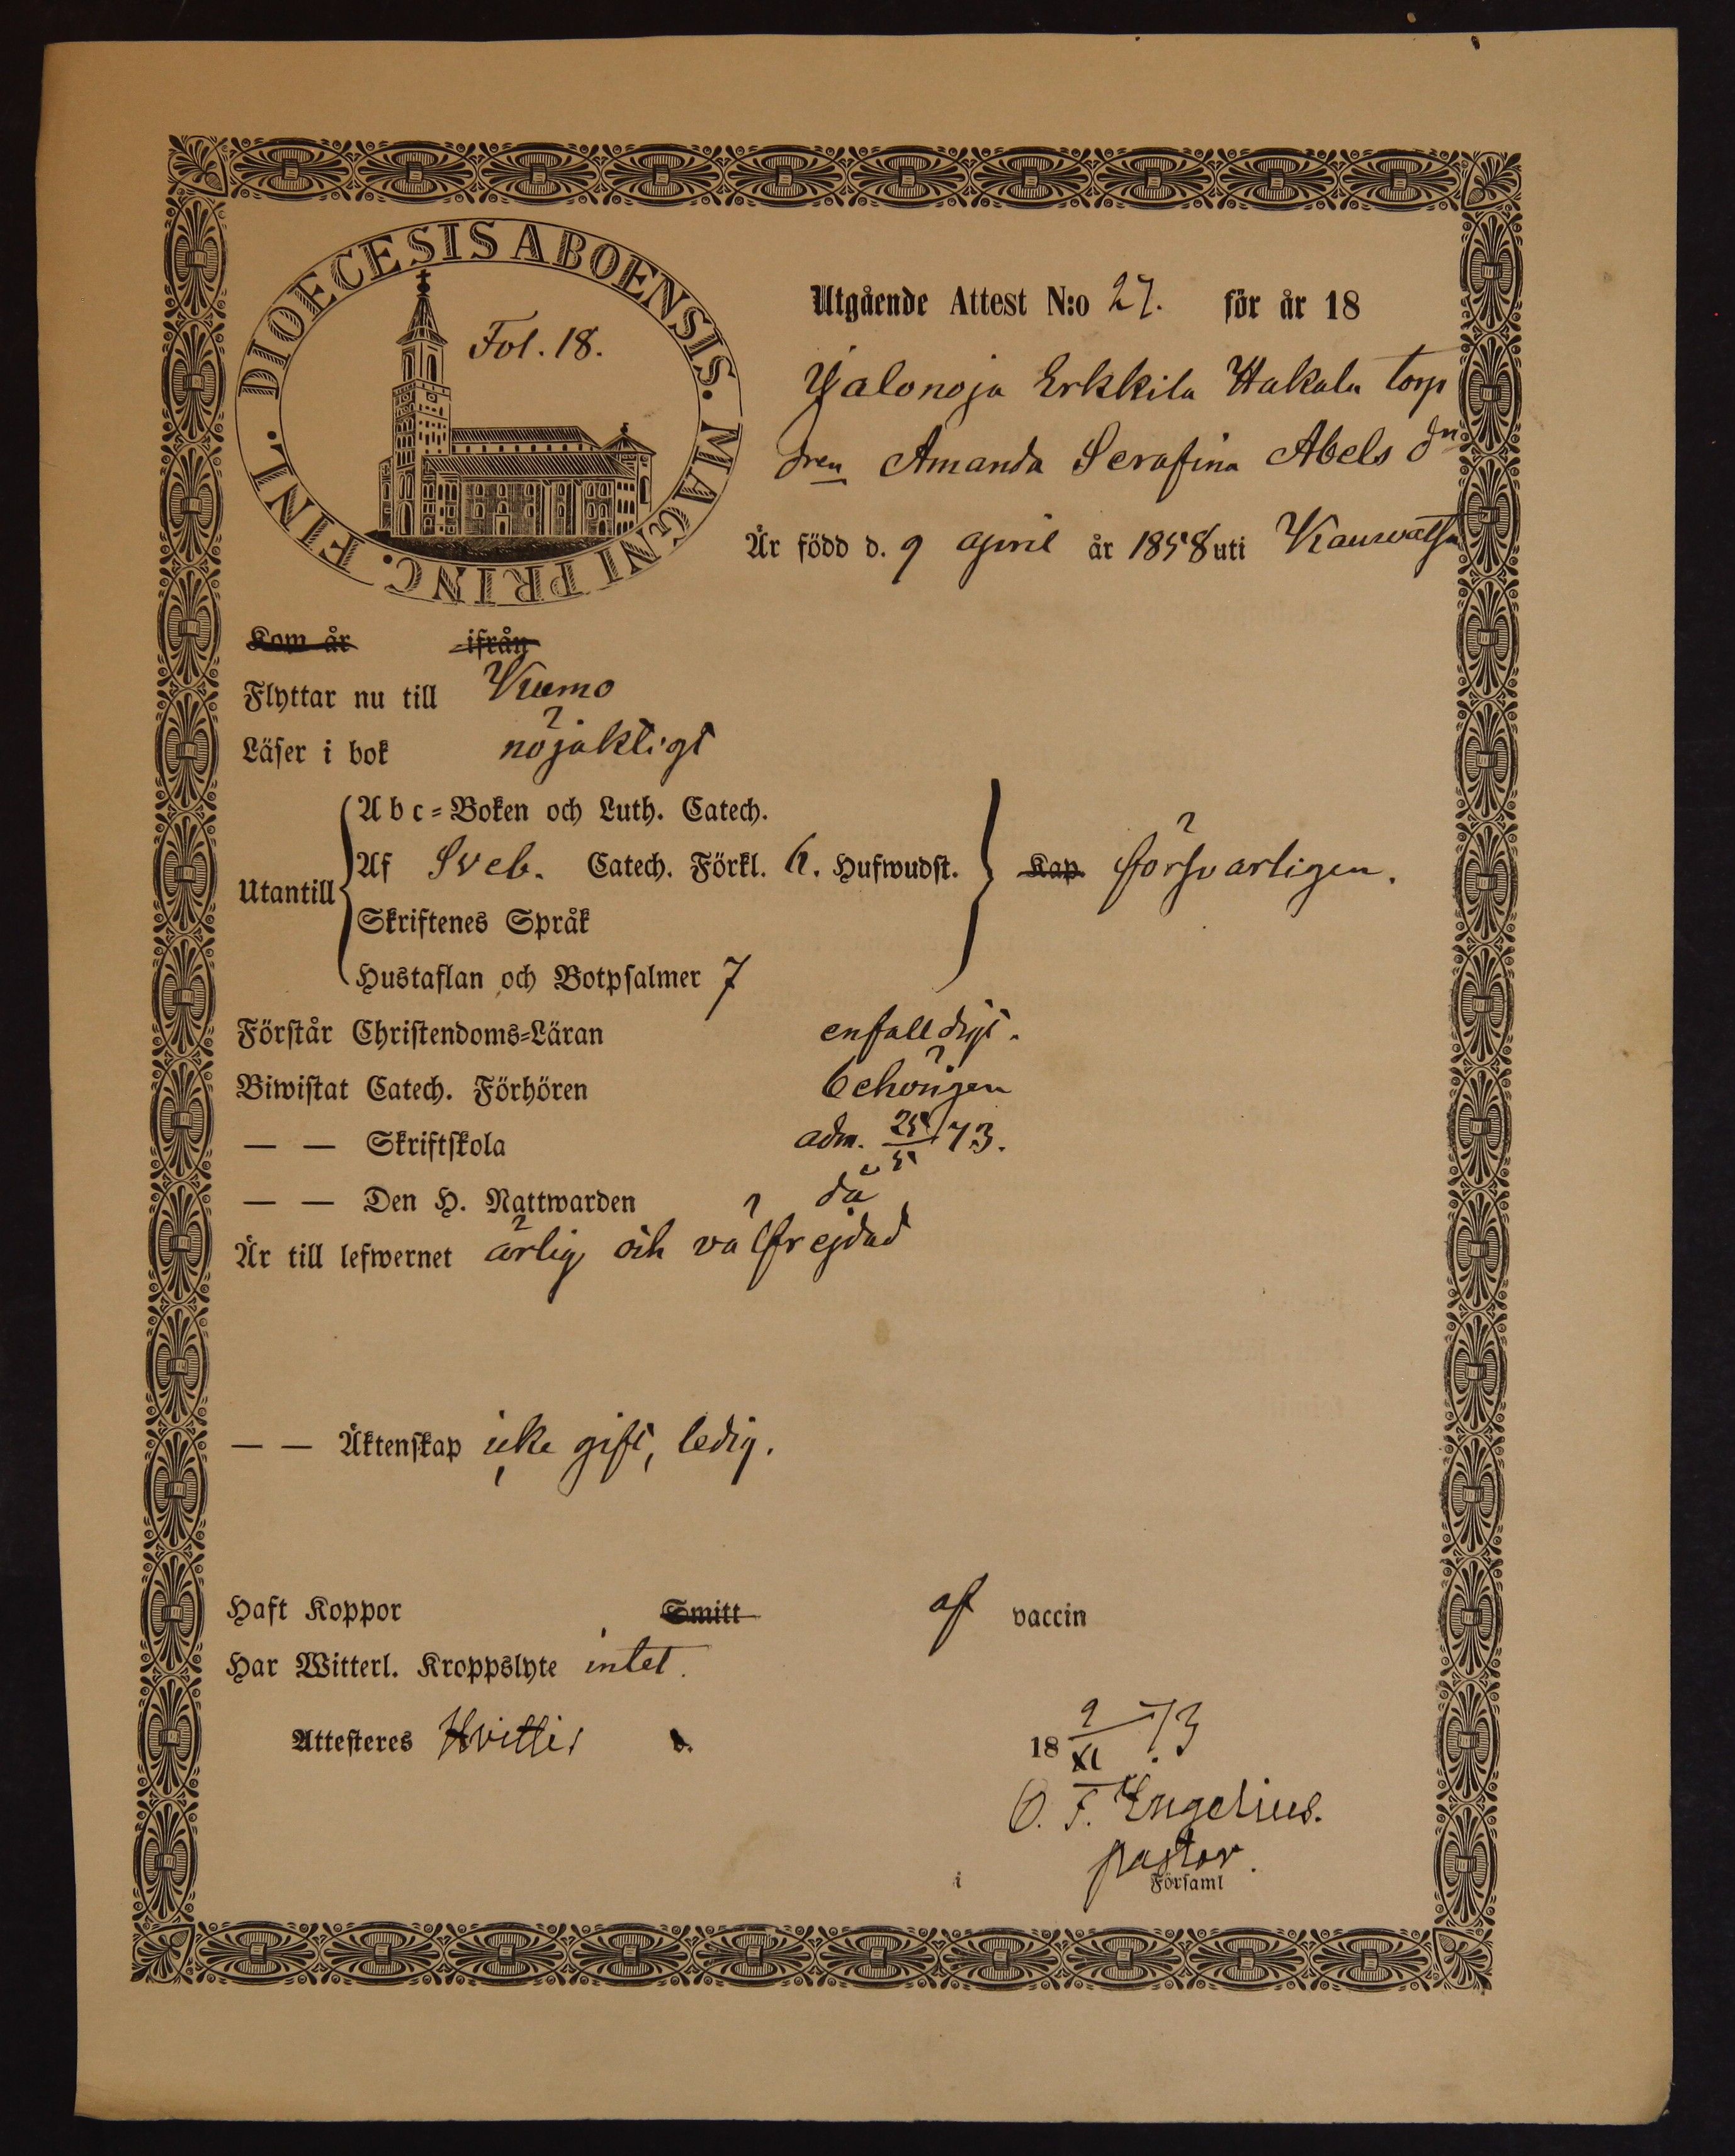 DIOECESIS ABOENSIS. MAGNI PRINC. FINL.
Fol. 18.
Utgående Attest N:o 27. för år 18
Jalonoja Erkkila Hakala torp
dren Amanda Serafina Abels dn
Är född d. 9 april år 1858 uti Kauvatsa
Kom år ifrån
Flyttar nu till Kumo
Läser i bok nöjaktligt
Abc=Boken och Luth. Catech.
Utantill Af Sveb. Catech. Förkl. 6. Hufwudst. Kap. försvarligen.
Skriftenes Språk
Hustaflan och Botpsalmer 7
Förstår Christendoms=Läran enfalldigt.
Biwistat Catech. Förhören behörigen
— — Skriftskola adm. 25/5 73.
— — Den H. Nattwarden då
Är till lefwernet ärlig och välfrejdad
— — Äktenskap icke gift, ledig.
Haft Koppor Smitt af vaccin
Har Witterl. Kroppslyte intet.
Attesteres Hvittis d. 18 9/XI 73
O. F. Engelius.
pastor.
i Församl